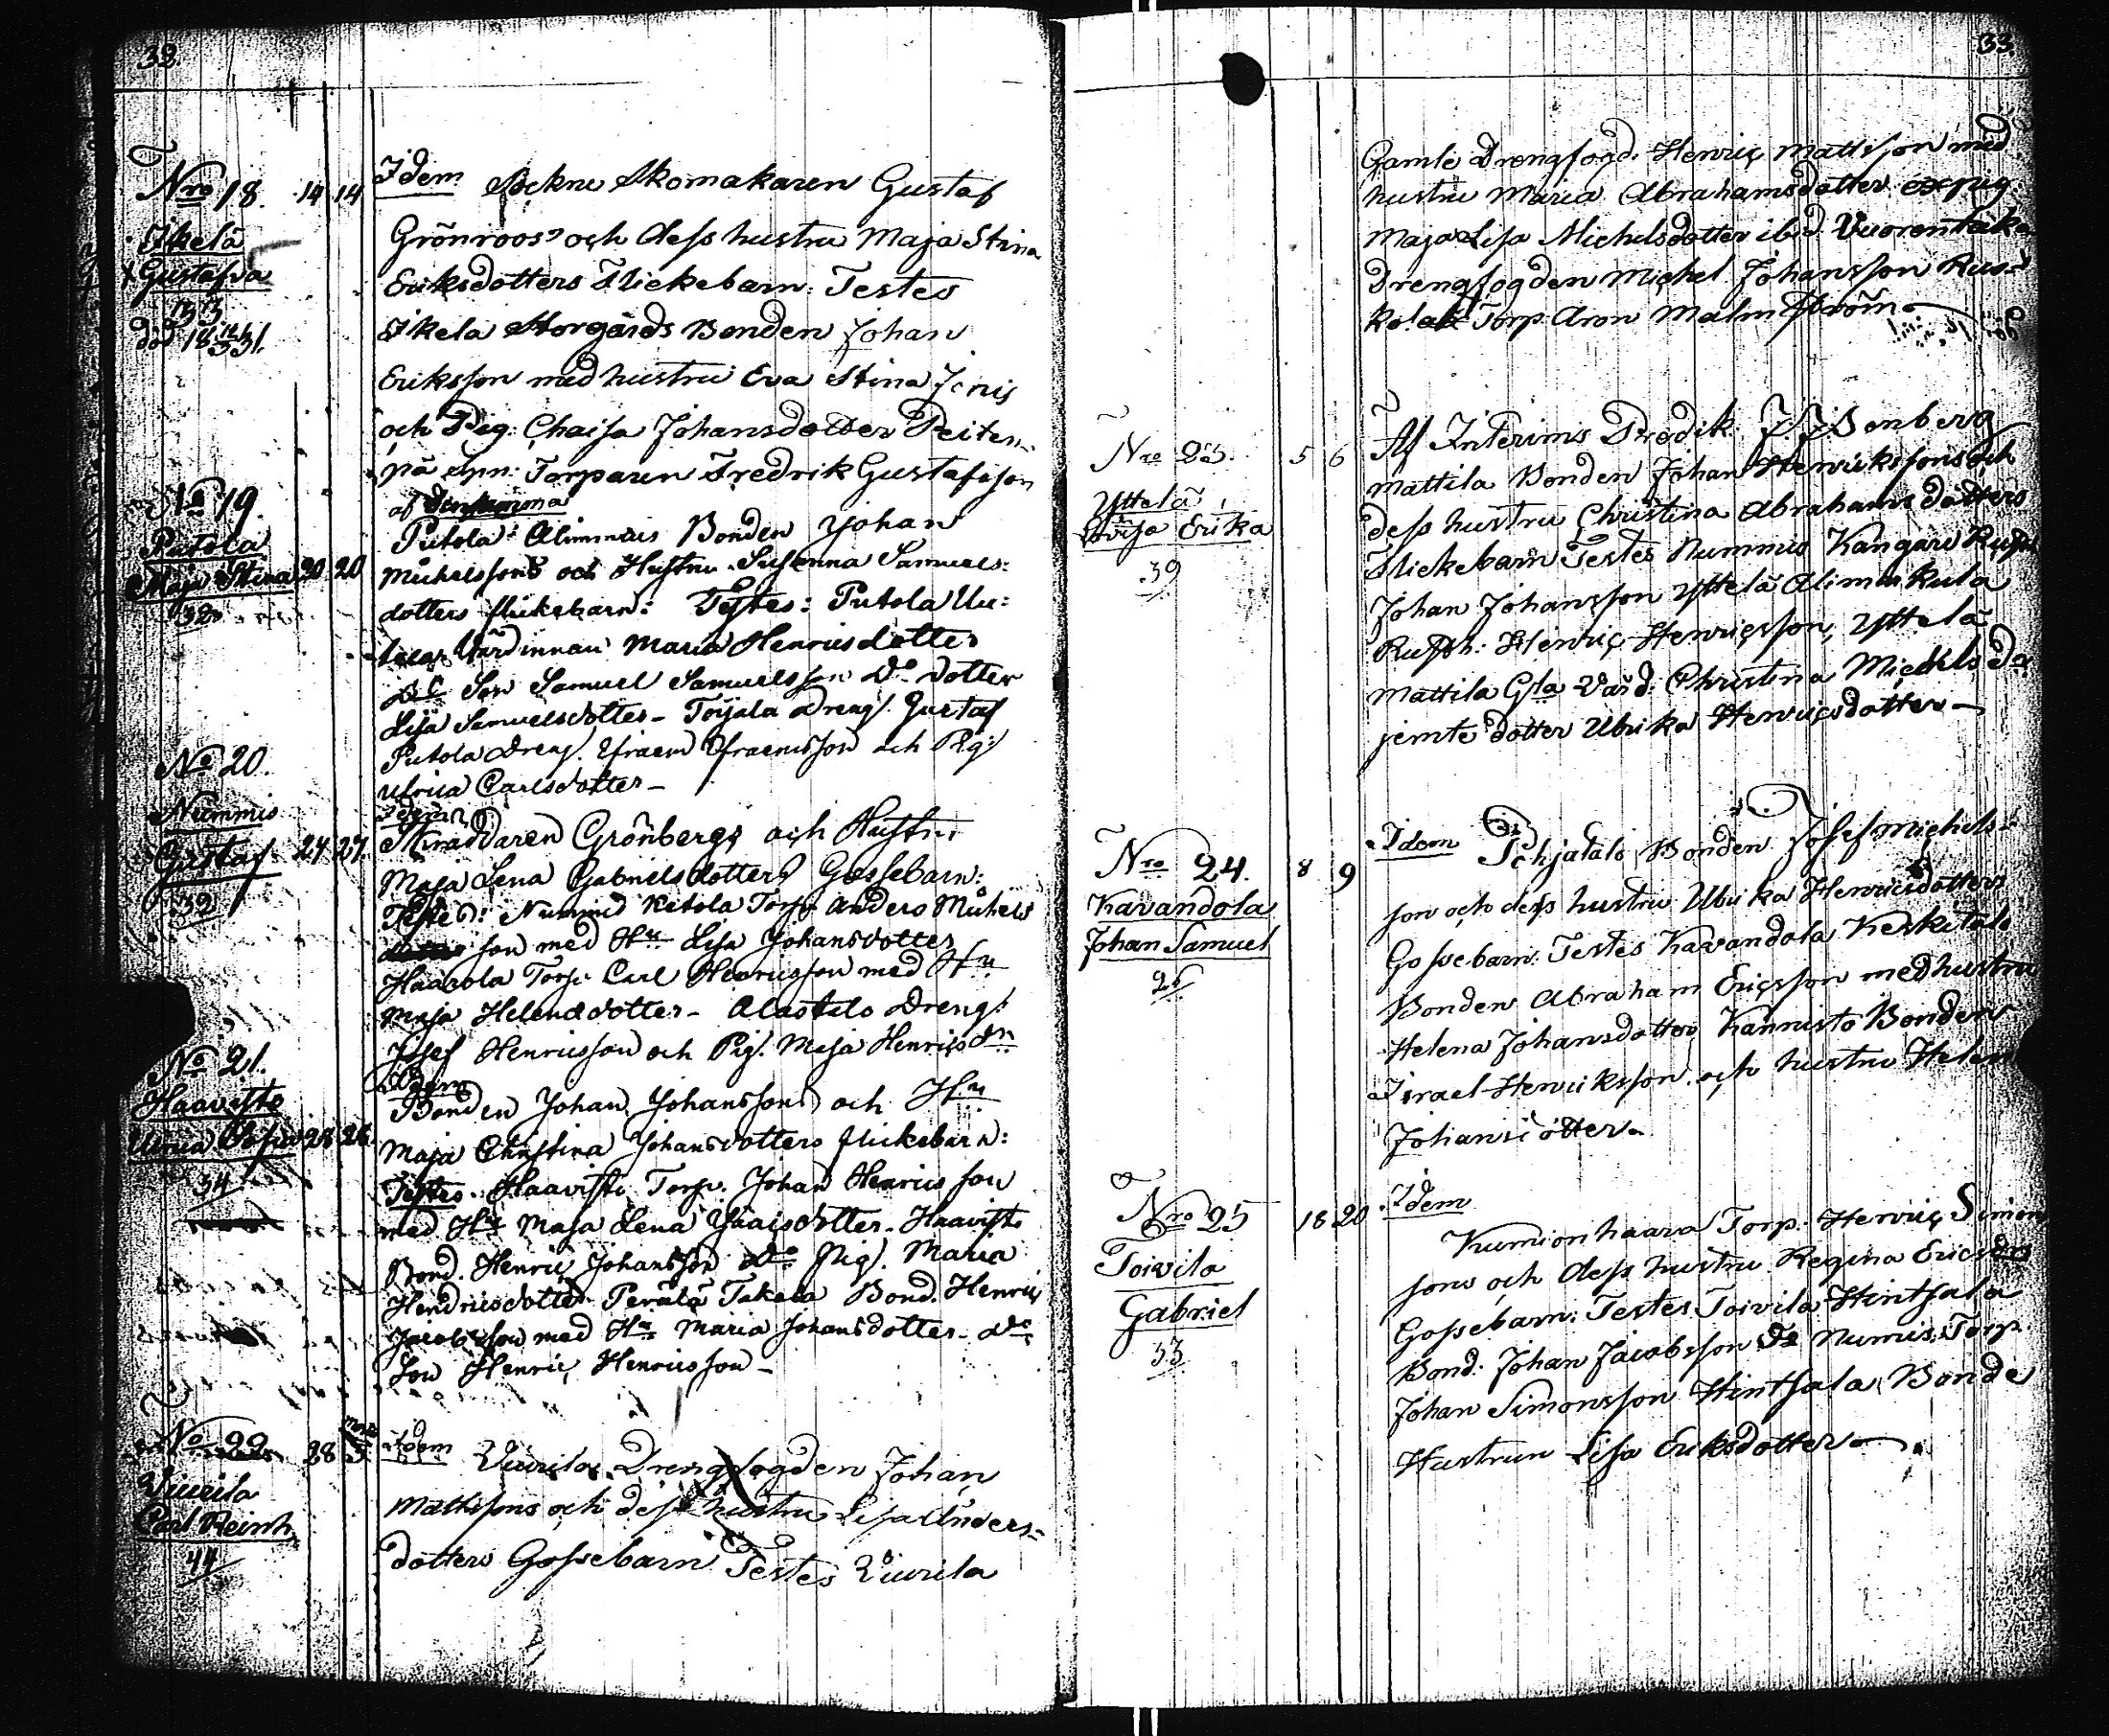 32
Nro 18. 14 14
Ikelä
Gustafva
död
Idem Sockne Skomakaren Gustaf
Grönroos och dess hustru Maja Stina
Eriksdotters Flickebarn. Testes
Ikela Storgårds Bonden Johan
Eriksson med hustru Eva Stina
och Pig: Chaisa Johansdotter
på Torparen Fredrik Gustafsson
No 19.
Putola
Maja Stina 20 20
32
af Densamma
Putola Alimmais Bonden Johan
Michelssons och Hustru Susanna Samuels:
dotters flickebarn: Testes: Putola Uu:
Värdinnan Maria Henricsdotter
Son Samuel Samuelsson Do dotter
Lisa Samuelsdotter - Toijala Dreng. Gustaf
Putola Dreng. Efraem Efraemsson och Pig:
Ulrica Carlsdotter -
No 20.
Nummis
Gustaf 24 27.
32
Idem
Grönbergs och Hustru
Maja Lena Gabrielsdotters Gossebarn:
Testes: Nummis Ketola Torp. Anders Michels
son med Hu Lisa Johansdotter
Haavola Torp. Carl Henricsson med Hu
Maja Helena dotter - Alastalo Dreng:
Josef Henricsson och Pig. Maja Henrics dr
No 21.
Haavisto
Ulrica Sofia 28 28
34
Idem
Bonden Johan Johanssons och Hu
Maja Christina Johansdotters flickebarn:
Testes. Haavisto Torp. Johan Henricsson
med Hu Maja Lena Isaacsdotter. Haavisto
Bond. Henric Johansson Do Pig. Maria
Hendricsdotter Perälä Takala Bond. Henric
Jacobsson med Hu Maria Johansdotter - Do
Son Henric Henricsson -
No 22. 28 5.
Wiurila
Carl Reinh
44
Idem Wiurila Drengfogden Johan
Mattssons och dess hustru Lisa Anders=
dotters Gossebarn Testes Wiurila
33
Gamle Drengfogd. Henric Mattsson med
hustru Maria Abrahamsdotter pig.
Maja Lisa Michelsdotter ibid. Vuorentaka
Drengfogden Michel Johansson
Torp. Aron Malmström
Nro 23. 5 6
Yttelä
Lovisa Erika
39
Af Interims Predik.
Mattila Bonden Johan Henrikssons och
dess hustru Christina Abrahams dotters
Flickebarn Testes Nummis Kangare
Johan Johansson Yttelä Alimmkula
Rusth: Henric Henricsson, Yttelä
Mattila Gla Värd: Christina Michels dr
jemte dotter Ulrika Henricsdotter -
Nro 24. 8 9
Kavandola
Johan Samuel
26
Idem Pohjatalo Bonden Josef Michels=
son och dess hustru Ulrika Henricsdotters
Gossebarn. Testes Kavandola Keskitalo
Bonden Abraham Ericsson med hustru
Helena Johansdotter, Kannisto Bonden
Israel Henriksson och hustru Helena
Johansdotter.
Nro 25 18 20
Toivila
Gabriel
33
Idem
Kumionhaara Torp. Henric Simons
sons och dess hustru Regina Ericsdrs
Gossebarn: Testes Toivila Hintsala
Bond: Johan Jacobsson Numis Torp.
Johan Simonsson Hintsala Bonde
Hustrun Lisa Eriksdotter